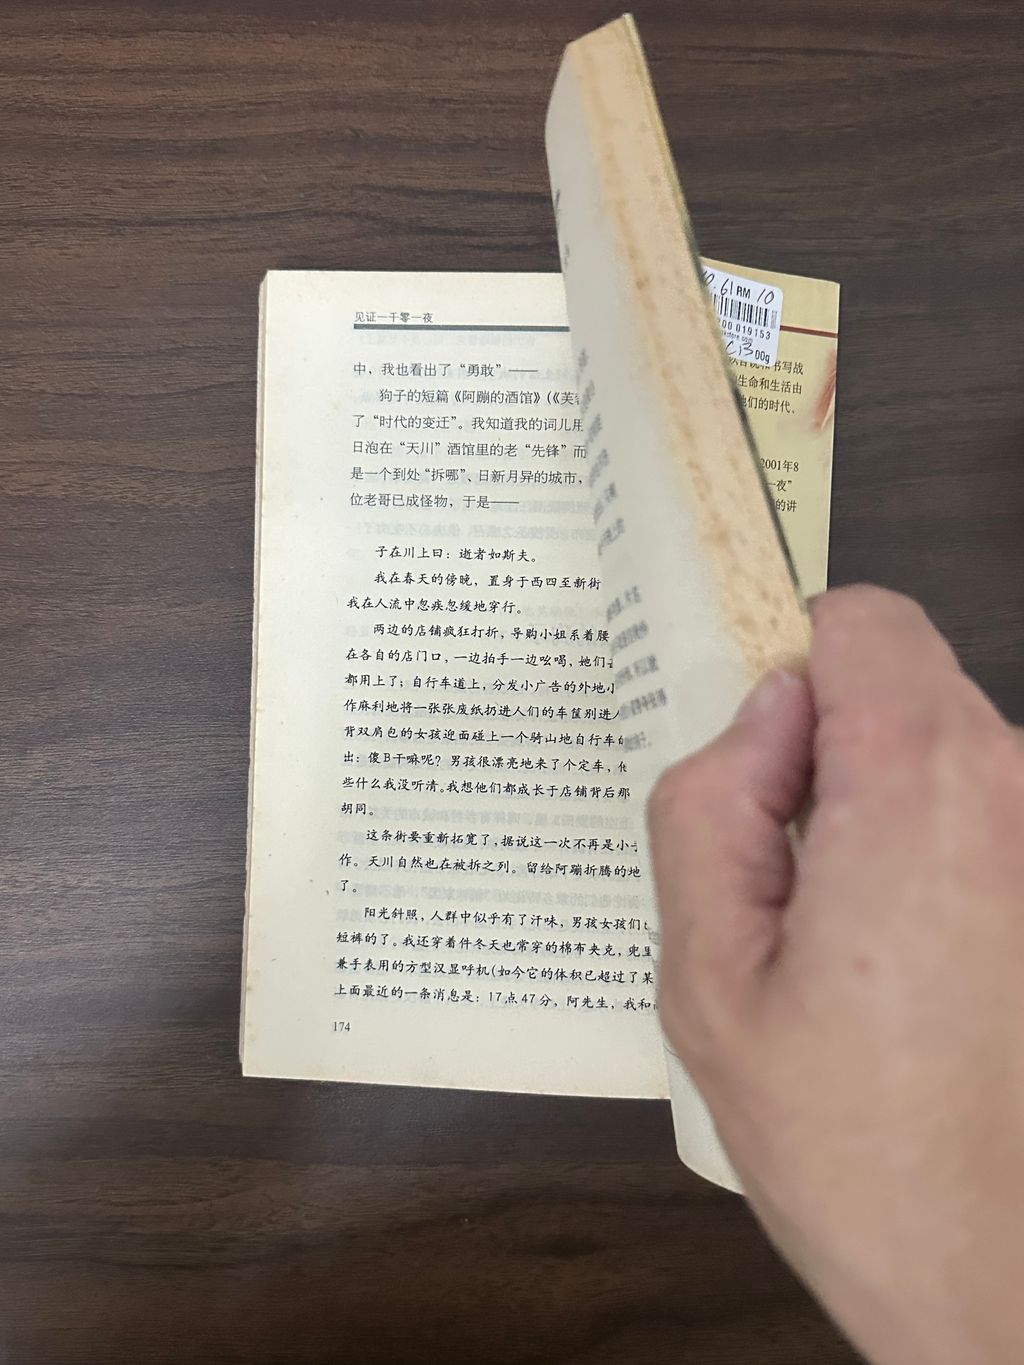 见证一千零一夜
中，我也看出了“勇敢”——
狗子的短篇《阿蹦的酒馆》(《芙
了“时代的变迁”。我知道我的词儿用
日泡在“天川”酒馆里的老“先锋”而
是一个到处“拆哪”、日新月异的城市，
位老哥已成怪物，于是——
子在川上曰：逝者如斯夫。
我在春天的傍晚，置身于西四至新街
我在人流中忽疾忽缓地穿行。
两边的店铺疯狂打折，导购小姐系着腰
在各自的店门口，一边拍手一边吆喝，她们
都用上了；自行车道上，分发小广告的外地
作麻利地将一张张废纸扔进人们的车筐别进
背双肩包的女孩迎面碰上一个骑山地自行车
出：傻B干嘛呢？男孩很漂亮地来了个定车，
些什么我没听清。我想他们都成长于店铺背后那
胡同。
这条街要重新拓宽了，据说这一次不再是小
作。天川自然也在被拆之列。留给阿蹦折腾的地
了。
阳光斜照，人群中似乎有了汗味，男孩女孩们
短裤的了。我还穿着件冬天也常穿的棉布夹克，兜里
兼手表用的方型汉显呼机(如今它的体积已超过了某
上面最近的一条消息是：17点47分，阿先生，我和
174
.61 RM 10
00 019153
00g
书写战
生命和生活由
他们的时代、
2001年8
一夜”
的讲